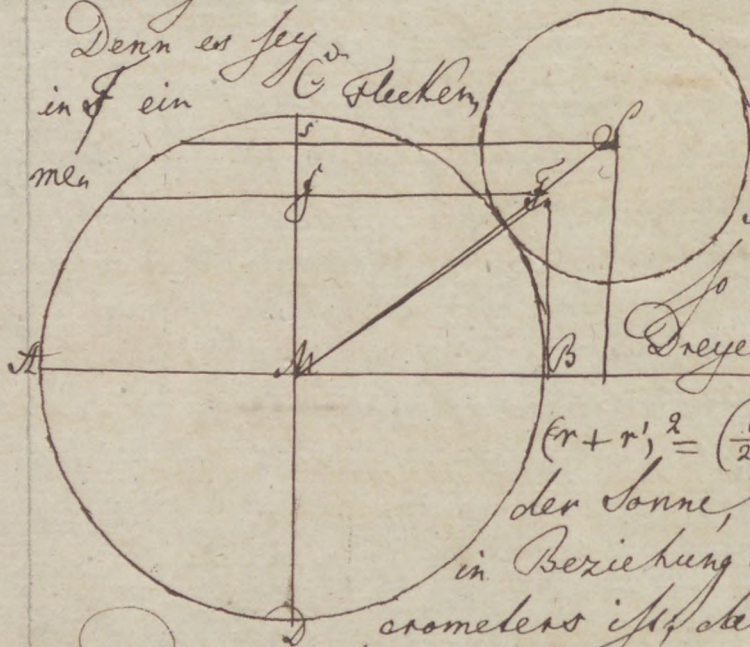 Denn es sey
in F ein Flecken,
C
men
s
f
F
A
M
B
D
so
Dreye
(r + r')² = (
der Sonne,
in Beziehung
arometers ist, da